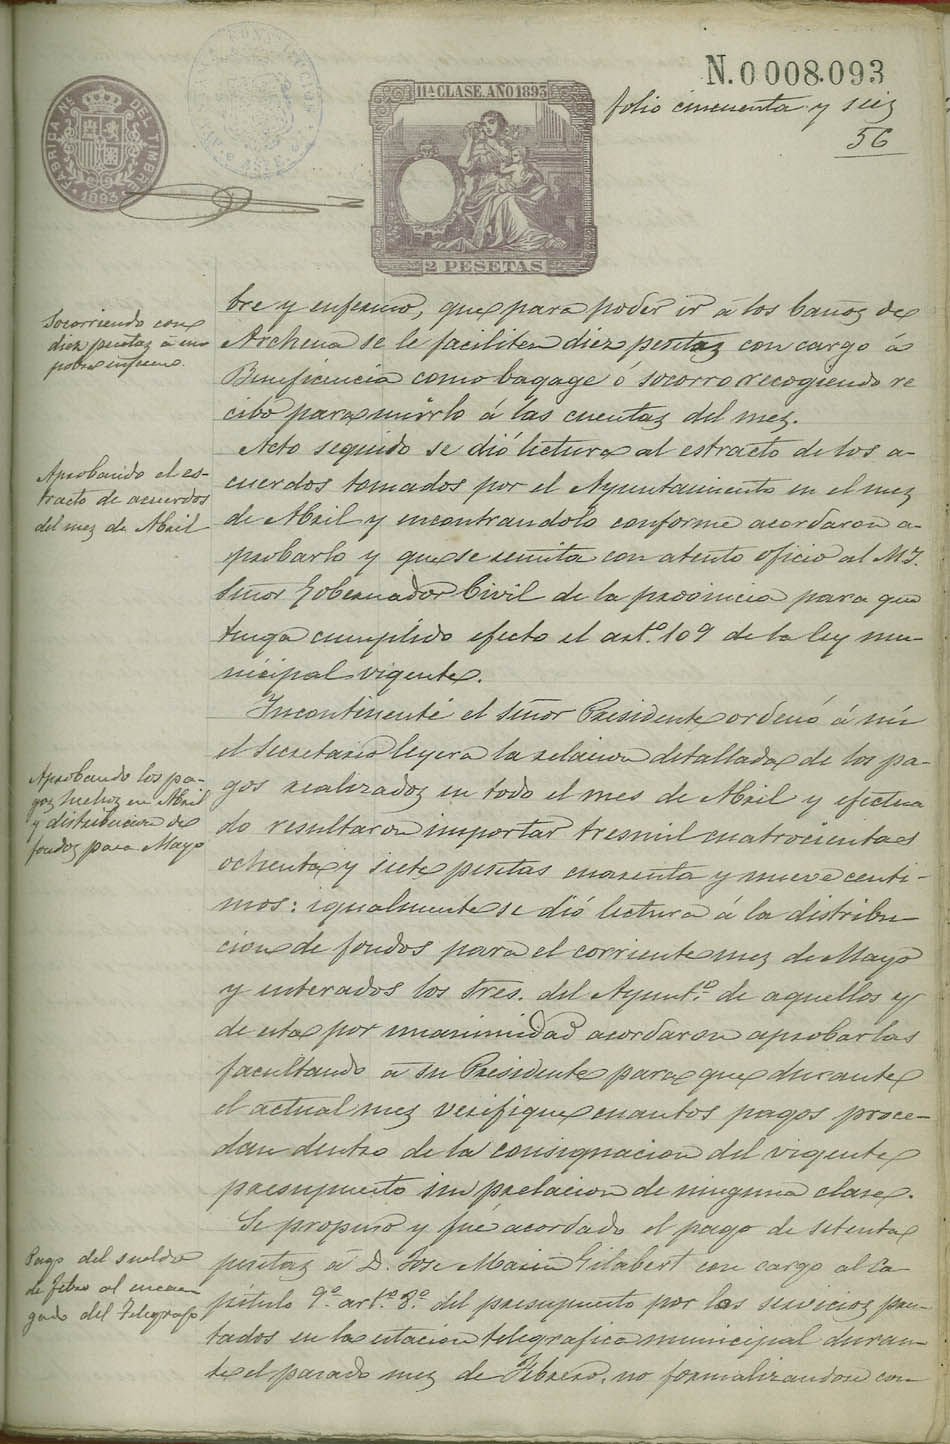 N.0008.093
folio cincuenta y seis
56
FABRICA NAL DEL TIMBRE
1893
11ª CLASE. AÑO 1893
2 PESETAS
Socorriendo con
diez pesetas á un
pobre enfermo.
bre y enfermo, que para poder ir á los baños de
Archena se le faciliten diez pesetas con cargo á
Beneficencia como bagage ó socorro recogiendo re
cibo para unirlo á las cuentas del mes.
Aprobando el es-
tracto de acuerdos
del mes de Abril
Acto seguido se dió lectura al estracto de los a-
cuerdos tomados por el Ayuntamiento en el mes
de Abril y encontrandolo conforme acordaron a-
probarlo y que se remita con atento oficio al M. I.
Señor Gobernador Civil de la provincia para que
tenga cumplido efecto el artº. 109 de la ley mu-
nicipal vigente.
Aprobando los pa-
gos hechos en Abril
y distribucion de
fondos para Mayo
Incontinenté el Señor Presidente ordenó á mi
el Secretario leyera la relacion detallada de los pa-
gos realizados en todo el mes de Abril y efectua
do resultaron importar tres mil cuatrocientas
ochenta y siete pesetas cuarenta y nueve centi-
mos: igualmente se dió lectura á la distribu-
cion de fondos para el corriente mes de Mayo
y enterados los Sres. del Ayuntº. de aquellos y
de esta por unanimidad acordaron aprobarlas
facultando á su Presidente para que durante
el actual mes verifique cuantos pagos proce-
dan dentro de la consignacion del vigente
presupuesto sin prelacion de ninguna clase.
Pago del sueldo
de Febro al encar-
gado del Telegrafo
Se propuso y fué acordado el pago de setenta
pesetas á D. Jose Marin Gilabert con cargo al Ca-
pítulo 9º artº. 8º. del presupuesto por los servicios pres-
tados en la estacion telegrafica municipal duran-
te el pasado mes de Febrero, no formalizandose con